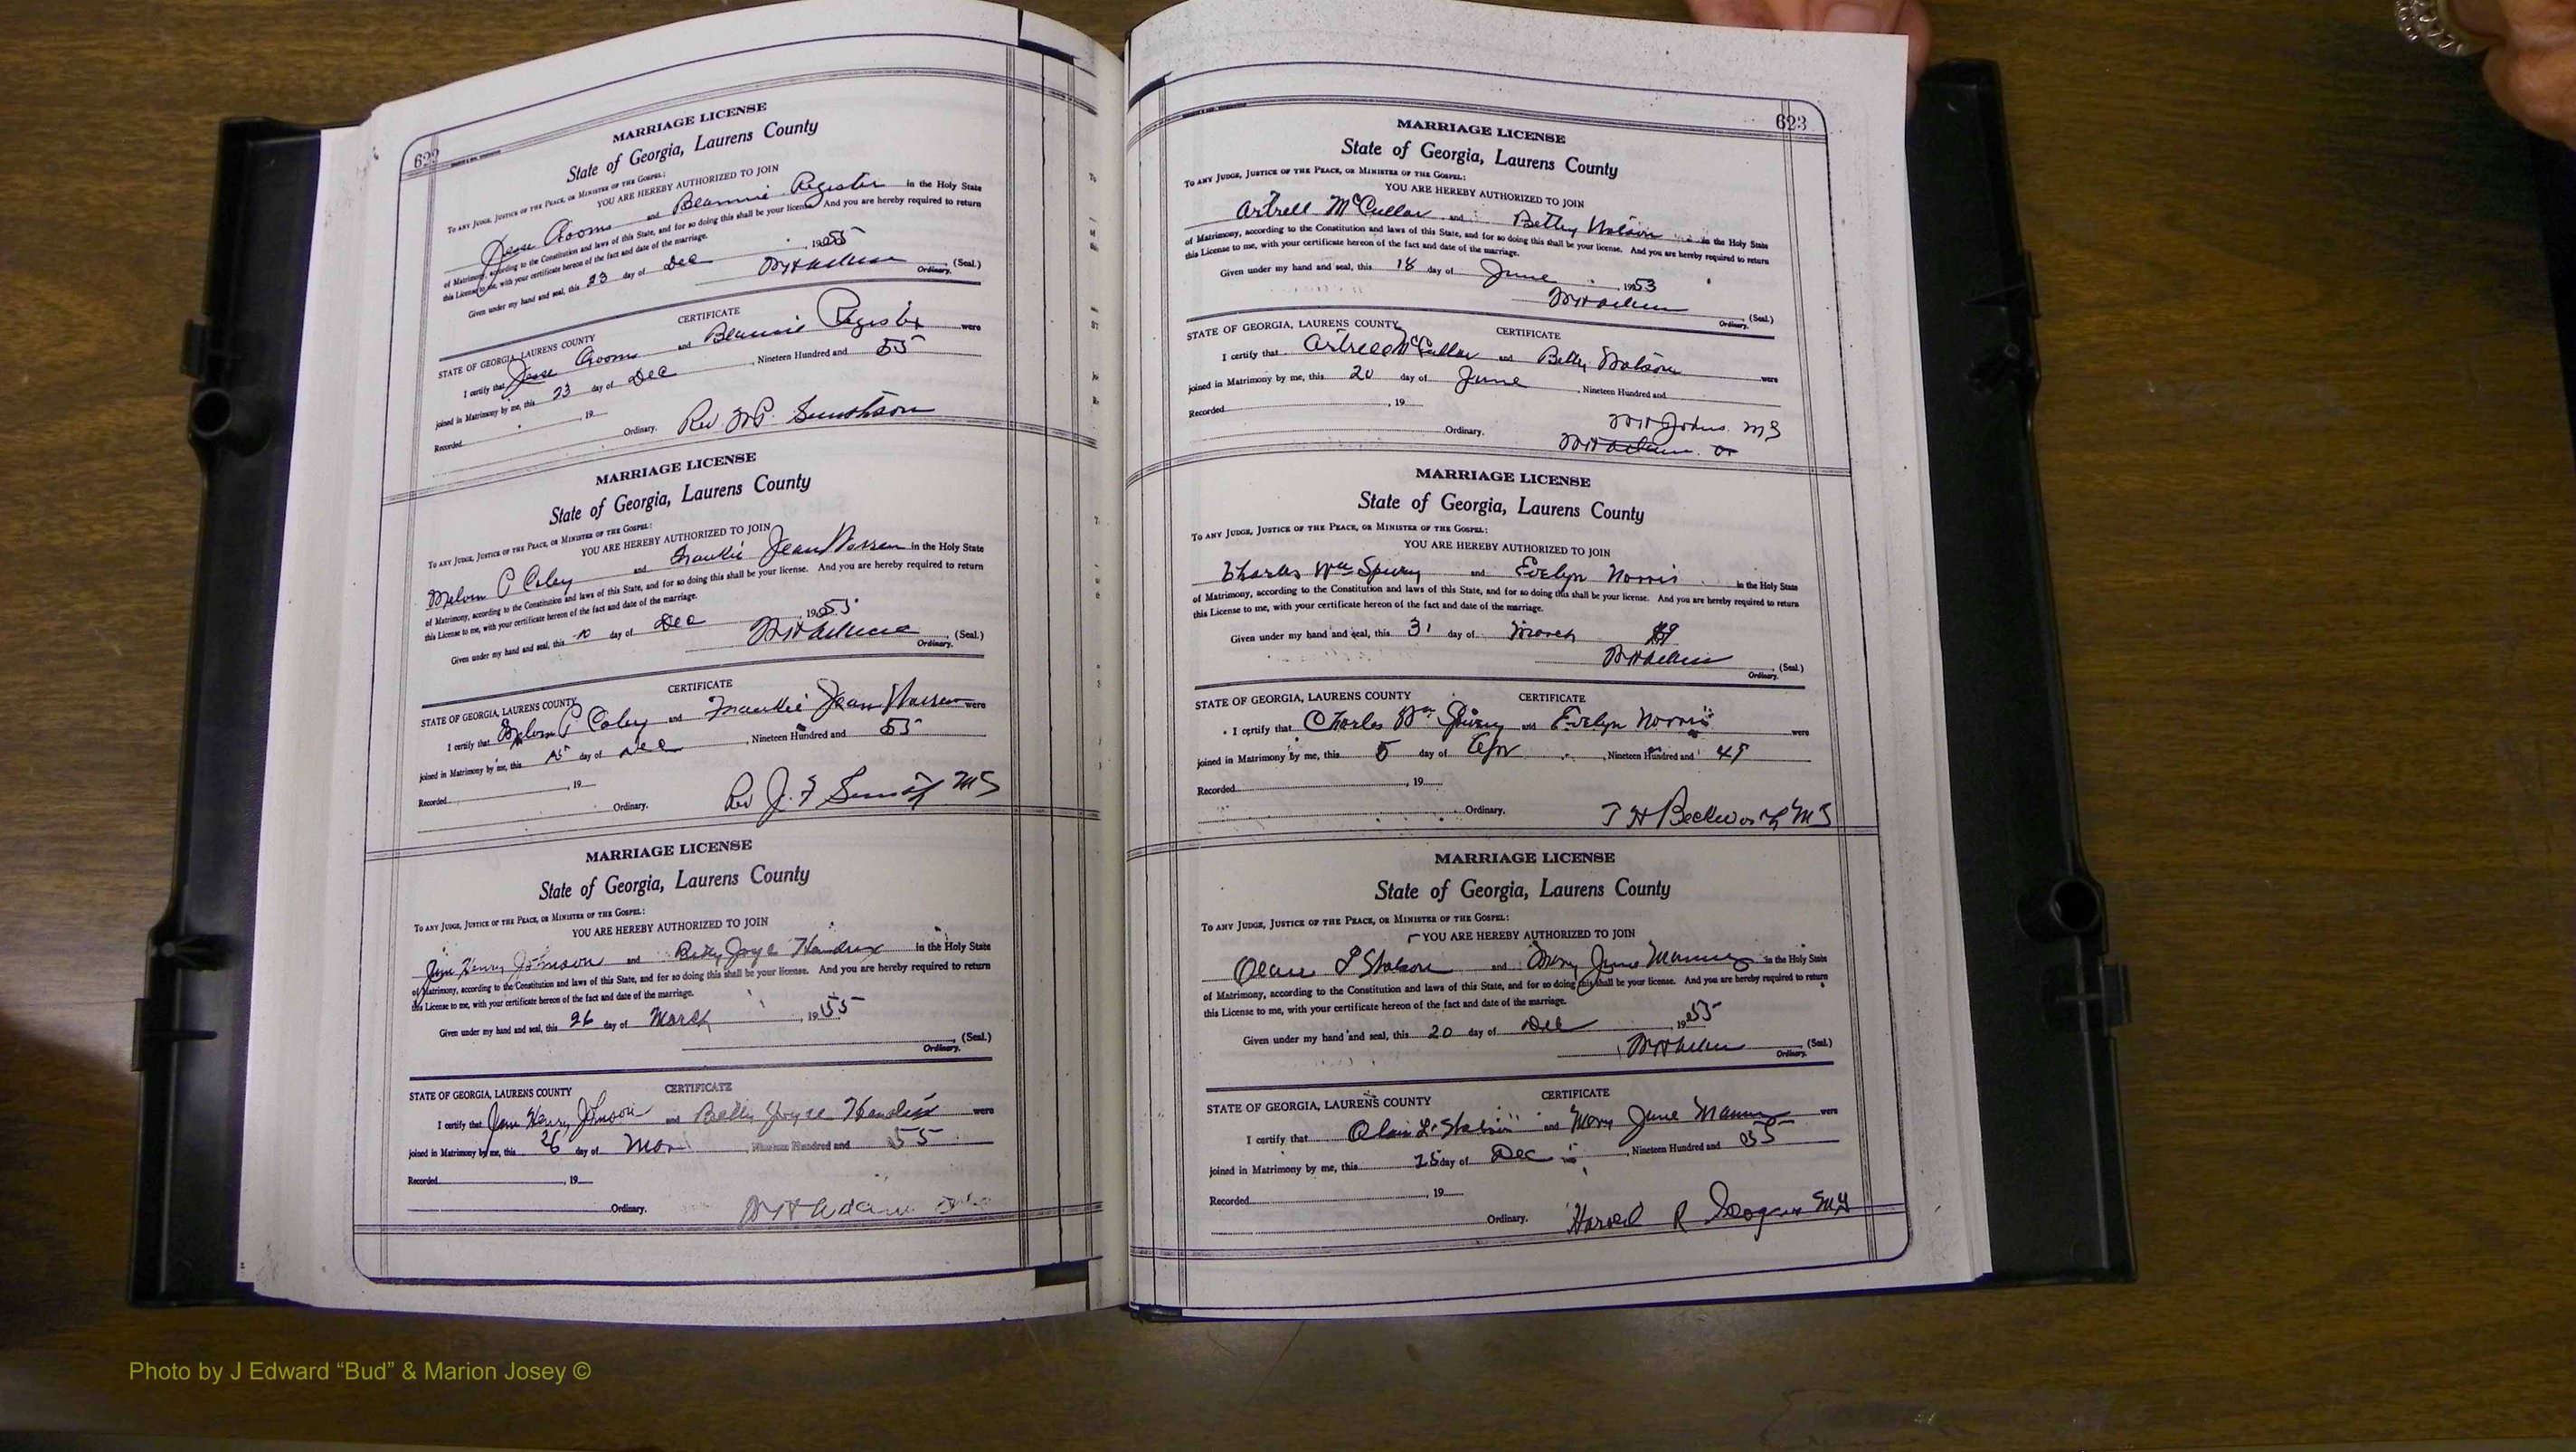 622
MARRIAGE LICENSE
State of Georgia, Laurens County
To ANY JUDGE, JUSTICE OF THE PEACE, OR MINISTER OF THE GOSPEL:
YOU ARE HEREBY AUTHORIZED TO JOIN
and Register in the Holy State
of Matrimony, according to the Constitution and laws of this State, and for so doing this shall be your license. And you are hereby required to return
this License to me, with your certificate hereon of the fact and date of the marriage.
Given under my hand and seal, this 23 day of Dec , 1955
(Seal.)
Ordinary.
CERTIFICATE
STATE OF GEORGIA, LAURENS COUNTY
I certify that and Register were
joined in Matrimony by me, this 23 day of Dec , Nineteen Hundred and 55
Recorded , 19
Ordinary. Rev.
MARRIAGE LICENSE
State of Georgia, Laurens County
To ANY JUDGE, JUSTICE OF THE PEACE, OR MINISTER OF THE GOSPEL:
YOU ARE HEREBY AUTHORIZED TO JOIN
Melvin C Coley and Frankie Jean Warren in the Holy State
of Matrimony, according to the Constitution and laws of this State, and for so doing this shall be your license. And you are hereby required to return
this License to me, with your certificate hereon of the fact and date of the marriage.
Given under my hand and seal, this 10 day of Dec , 19
(Seal.)
Ordinary.
CERTIFICATE
STATE OF GEORGIA, LAURENS COUNTY
I certify that Melvin C Coley and Frankie Jean Warren were
joined in Matrimony by me, this day of Dec , Nineteen Hundred and 55
Recorded , 19
Ordinary. Rev J. F MG
MARRIAGE LICENSE
State of Georgia, Laurens County
To ANY JUDGE, JUSTICE OF THE PEACE, OR MINISTER OF THE GOSPEL:
YOU ARE HEREBY AUTHORIZED TO JOIN
Jim Henry Johnson and Betty Joyce Hendrix in the Holy State
of Matrimony, according to the Constitution and laws of this State, and for so doing this shall be your license. And you are hereby required to return
this License to me, with your certificate hereon of the fact and date of the marriage.
Given under my hand and seal, this 26 day of March , 1955
(Seal.)
Ordinary.
CERTIFICATE
STATE OF GEORGIA, LAURENS COUNTY
I certify that Jim Henry Johnson and Betty Joyce Hendrix were
joined in Matrimony by me, this 26 day of Mar , Nineteen Hundred and 55
Recorded , 19
Ordinary.
623
MARRIAGE LICENSE
State of Georgia, Laurens County
To ANY JUDGE, JUSTICE OF THE PEACE, OR MINISTER OF THE GOSPEL:
YOU ARE HEREBY AUTHORIZED TO JOIN
Artrell McCullar and Betty Watson in the Holy State
of Matrimony, according to the Constitution and laws of this State, and for so doing this shall be your license. And you are hereby required to return
this License to me, with your certificate hereon of the fact and date of the marriage.
Given under my hand and seal, this 18 day of June , 1953
(Seal.)
Ordinary.
CERTIFICATE
STATE OF GEORGIA, LAURENS COUNTY
I certify that Artrell McCullar and Betty Watson were
joined in Matrimony by me, this 20 day of June , Nineteen Hundred and
Recorded , 19
Ordinary. MG
MARRIAGE LICENSE
State of Georgia, Laurens County
To ANY JUDGE, JUSTICE OF THE PEACE, OR MINISTER OF THE GOSPEL:
YOU ARE HEREBY AUTHORIZED TO JOIN
Charles Wm Spivey and Evelyn Norris in the Holy State
of Matrimony, according to the Constitution and laws of this State, and for so doing this shall be your license. And you are hereby required to return
this License to me, with your certificate hereon of the fact and date of the marriage.
Given under my hand and seal, this 31 day of March
(Seal.)
Ordinary.
CERTIFICATE
STATE OF GEORGIA, LAURENS COUNTY
I certify that Charles Wm Spivey and Evelyn Norris were
joined in Matrimony by me, this 5 day of Apr , Nineteen Hundred and 49
Recorded , 19
Ordinary. J H Beckworth MG
MARRIAGE LICENSE
State of Georgia, Laurens County
To ANY JUDGE, JUSTICE OF THE PEACE, OR MINISTER OF THE GOSPEL:
YOU ARE HEREBY AUTHORIZED TO JOIN
and Mary June in the Holy State
of Matrimony, according to the Constitution and laws of this State, and for so doing this shall be your license. And you are hereby required to return
this License to me, with your certificate hereon of the fact and date of the marriage.
Given under my hand and seal, this 20 day of Dec , 1955
(Seal.)
Ordinary.
CERTIFICATE
STATE OF GEORGIA, LAURENS COUNTY
I certify that and Mary June were
joined in Matrimony by me, this 25 day of Dec , Nineteen Hundred and 55
Recorded , 19
Ordinary. R MG
Photo by J Edward “Bud” & Marion Josey ©